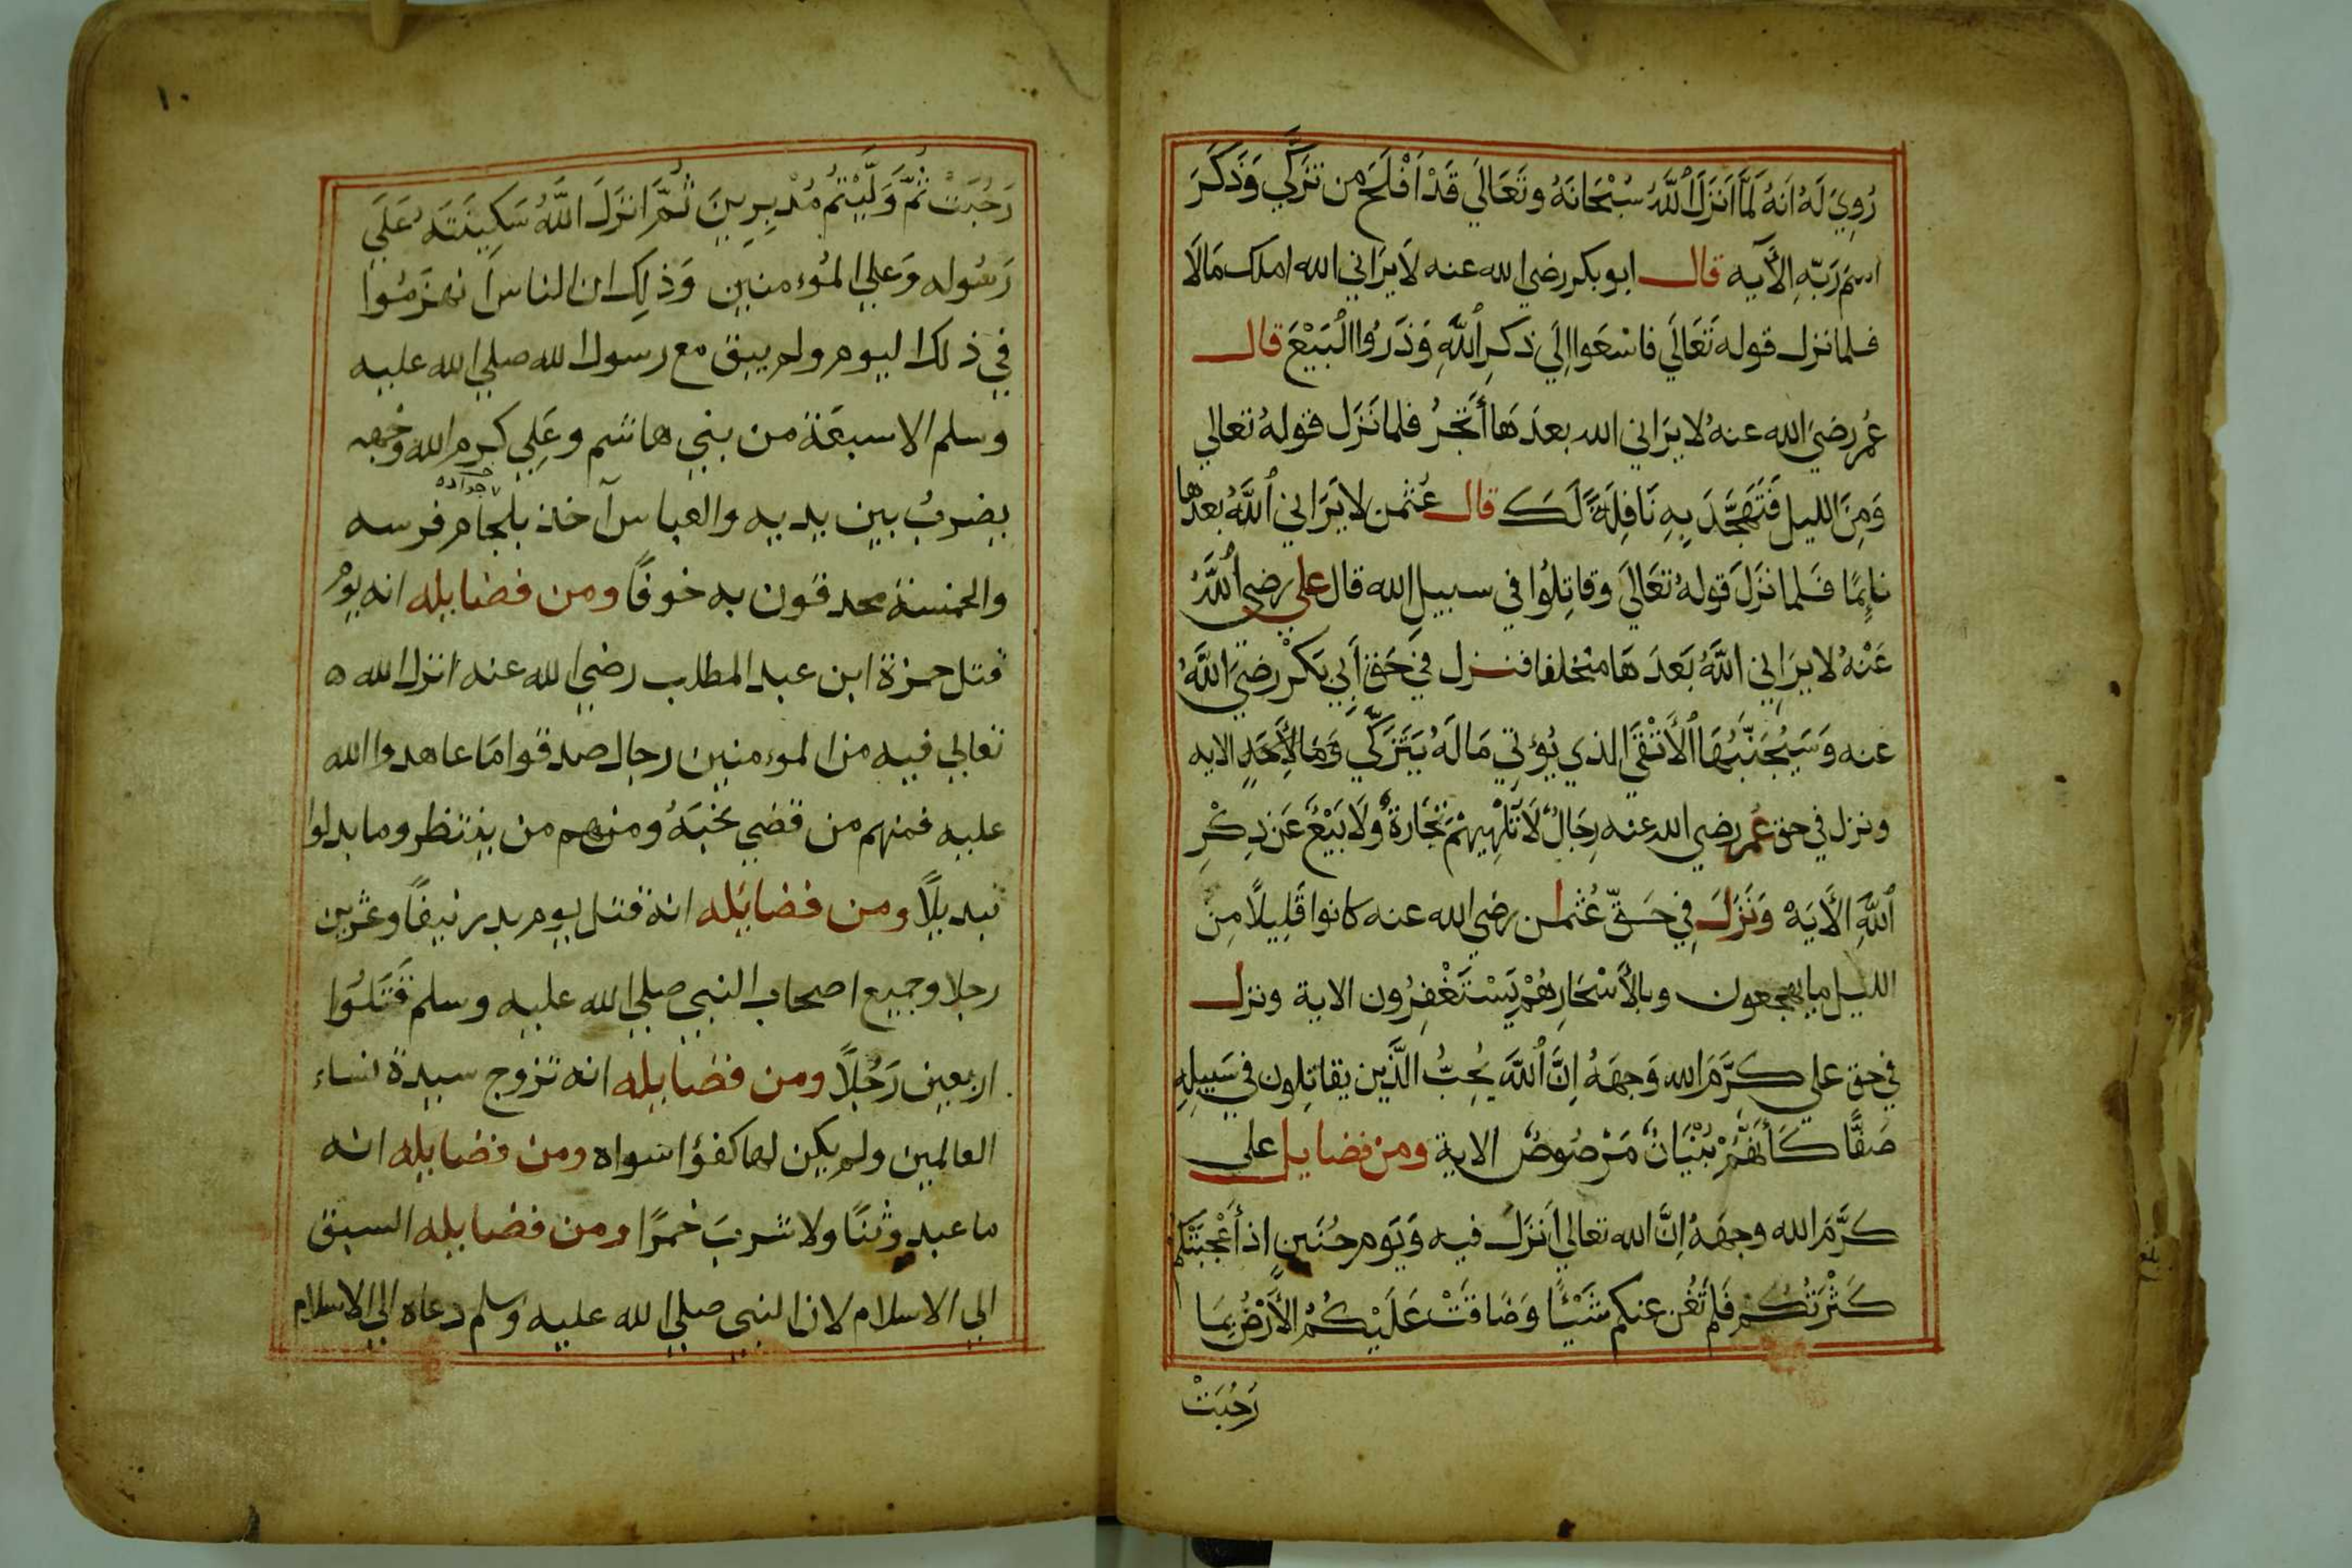 رُوِيَ لَهُ اَنهُ لَمَّا اَنزَلَ ٱللَّهُ سُبْحَانَهُ وتَعَالَي قَدْ اَفْلَحَ من تزَكَّي وَذَكَرَ
اسمَ رَبّهِ الآيه قال ابو بكر رضي الله عنه لَا يَرَاني الله املك مَالاً
فلما نزل قوله تَعَالَي فاسْعَوا اِلَي ذكرِ ٱللَّهِ وَذَرُوا الْبَيْعَ قال
عُمر رضيَ الله عنهُ لا يَرَاني الله بعدَهَا أَتَّجِرُ فلما نَزَل قولهُ تعالي
وَمِنَ الليل فَتَهَجَّدَ بِهِ نَافِلَةً لَكَ قال عُثمٰن لا يَرَاني ٱللَّهُ بعدها
نايِمًا فَلما نزَلَ قولهُ تعَالَي وقاتِلُوا في سبيلِ الله قال علي رضي ٱللَّهُ
عَنْهُ لا يَرَاني اللَّهُ بَعَدَ هَا متخلفا فنزل في حَقّ أَبِي بَكْرٍ رضيَ اللَّهُ
عنه وَسَيُجَنَّبُهَا ٱلْأَتْقَي الذي يُؤتِي مَالَهُ يَتَزَكَّي وَمَا لِأَحَدٍ الايه
ونزل في حق عُمر رضي الله عنه رِجَالٌ لَا تُلْهِيهِمْ تِجَارَةٌ وَلَا بَيْعٌ عَن ذِكْرِ
ٱللَّهِ الأَيَهْ وَنَزَلَ فِي حَقّ عُثمٰن رضي الله عنه كانوا قَلِيلًا مِنَ
الليل ما يهجعون وبالأَسْحَارِ هُمْ يَسْتَغْفِرُون الاية ونزل
في حق علي كَرَّمَ الله وَجهَهُ اِنَّ ٱللَّهَ يُحِبُّ الَّذين يقاتِلون في سَبِيلِهِ
صَفًّا كَأَنَّهُمْ بُنْيَانٌ مَرْصُوصٌ الاية ومن فضايل علي
كَرَّمَ الله وجهَهُ اِنَّ الله تعالي أَنزَلَ فيه وَيَوم حُنَينٍ اذ أَعْجَبَتْكُمْ
كَثْرَتُكُمْ فَلَمْ تُغْن عنكم شَيْئًا وَضَاقَتْ عَلَيْكُمُ الأَرْضُ بِمَا
رَحُبَتْ
١٠
رَحُبَتْ ثُمَّ وَلَّيْتُم مُدْبِرِينَ ثُمَّ اَنزَلَ اللَّهُ سَكِينَتَهُ عَلَي
رَسُوله وَعَلي المُوءمنين وَذَلِكَ ان الناس اَنهزَمُوا
في ذلك اليوم ولم يبق مع رسول الله صلي الله عليه
وسلم الا سبعَة من بني هاشم وعَلِي كرم الله وجهه
يضربُ بين يديه والعباس آخذ بلجام فرسه
والخمسة محدقون به خوفًا ومن فضايله انه يوم
قتل حمزة ابن عبد المطلب رضي الله عنه انزل الله ه
تعالي فيه من الموءمنين رجال صدقوا مَا عاهدوا الله
عليه فمنهم من قضي نحبَهُ ومنهم من ينتظر وما بدلوا
تبديلًا ومن فضايَله انهُ قتل يوم بدر نيفًا وعشرين
رجلا وجميع اصحاب النبي صلي الله عليه وسلم قَتَلُوا
اربعين رَجُلًا ومن فضايله انه تزوج سيدة نساء
العالمين ولم يكن لها كفؤا سواه ومن فضايله انه
ما عبد وثنًا ولا شربَ خمرًا ومن فضايله السبق
الي الاسلام لان النبي صلي الله عليه وسلم دعاه الي الاسلام